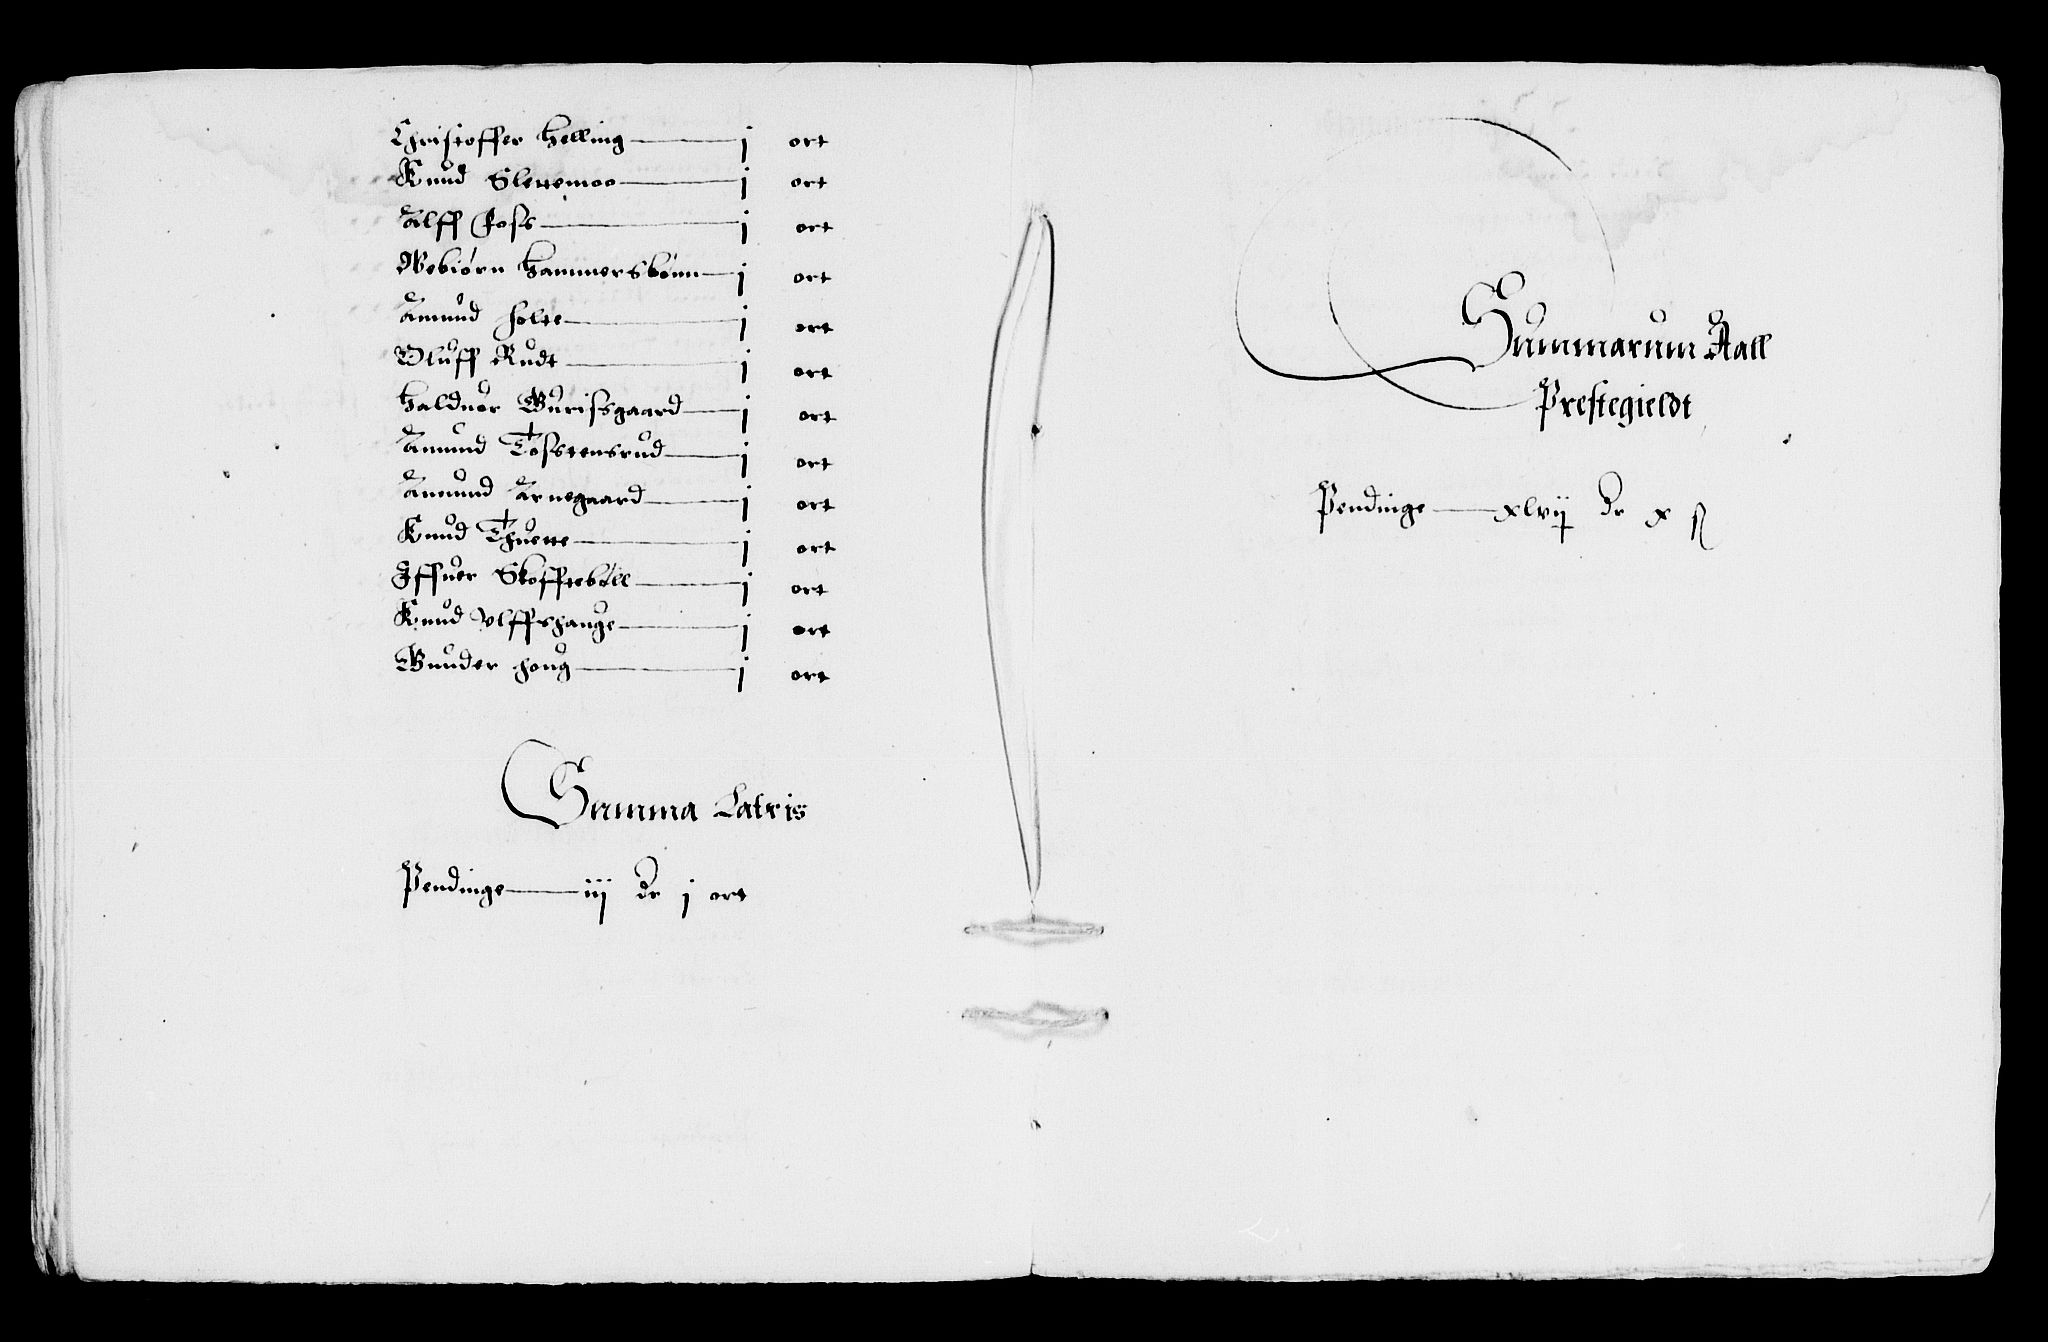 Christoffer Helling — j ort
Knud Slettemoo — j ort
Alff Foss — j ort
Webiørn Hammersbønn — j ort
Amund Holte — j ort
Oluff Rudt — j ort
Halduor Gurissgaard — j ort
Amund Tosstensrud — j ort
Amund Arnegaard — j ort
Knud Thuette — j ort
Iffuer Skofftebøll — j ort
Knud Ulffshauge — j ort
Gunder Houg — j ort
Summa Latris
Pendinge — iij dr j ort
Summarum Aall
Prestegieldt
Pendinge — xlvij dr x ß